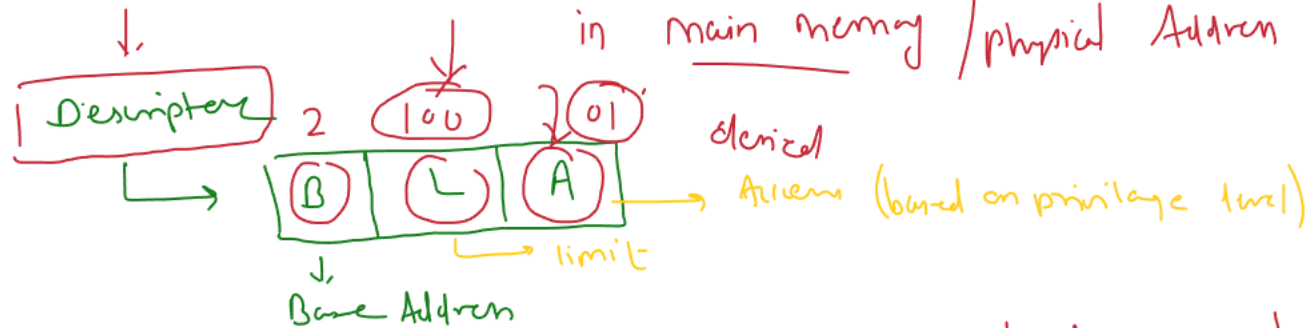 in main memory / physical Address
Descriptor 2 100 01
denied
B L A Access (based on privilage level)
limit
Base Address